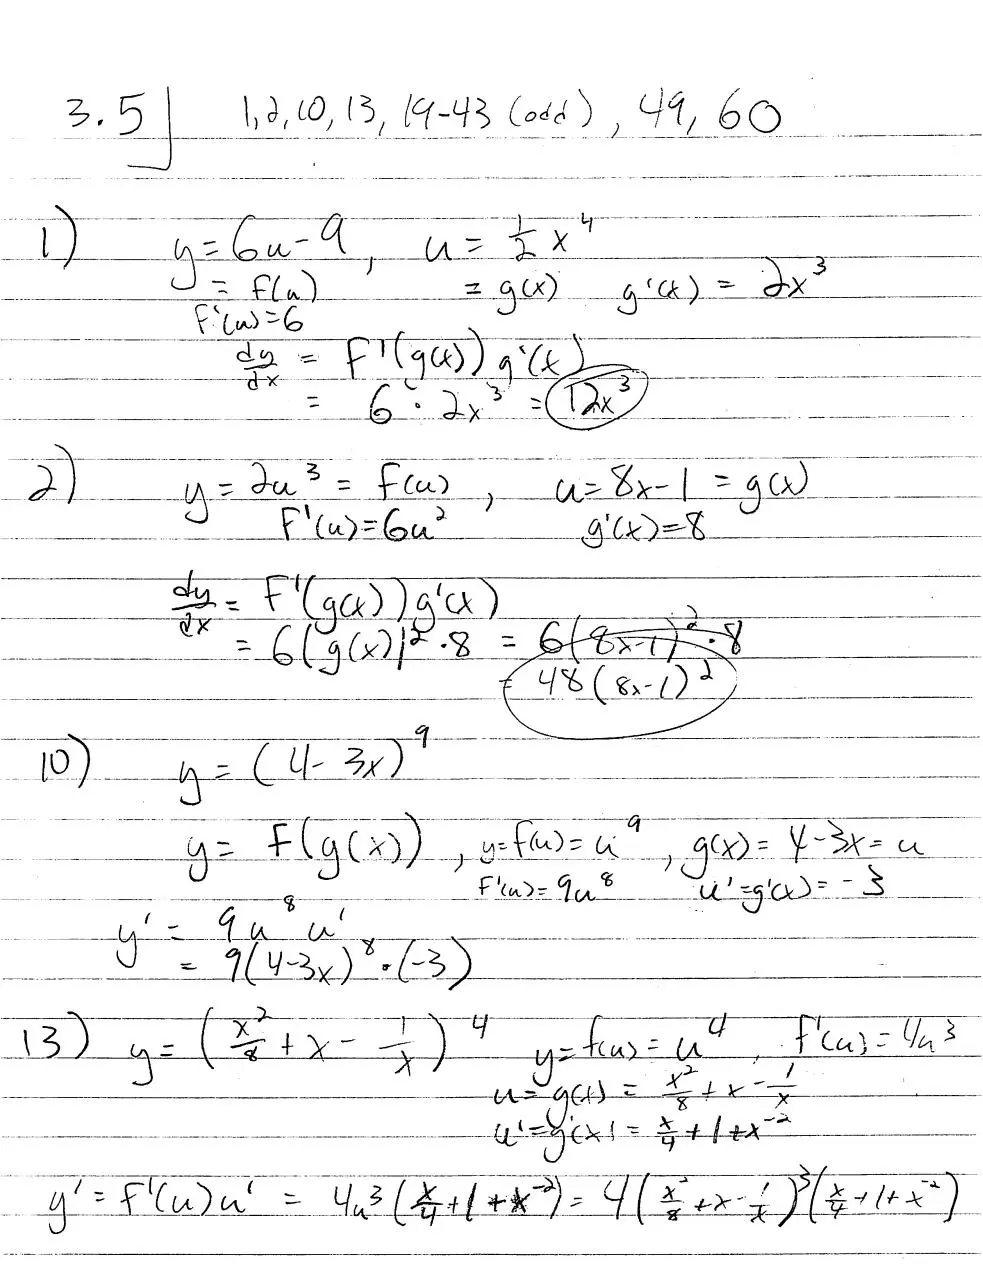 3.5 1, 2, 10, 13, 19-43 (odd), 49, 60
1) y = 6u - 9, u = 1/2 x^4
= f(u) = g(x) g'(x) = 2x^3
f'(u) = 6
dy/dx = f'(g(x)) g'(x)
= 6 · 2x^3 = 12x^3
2) y = 2u^3 = f(u), u = 8x - 1 = g(x)
f'(u) = 6u^2 g'(x) = 8
dy/dx = f'(g(x)) g'(x)
= 6(g(x))^2 · 8 = 6(8x-1)^2 · 8
= 48(8x-1)^2
10) y = (4 - 3x)^9
y = f(g(x)), y = f(u) = u^9, g(x) = 4 - 3x = u
f'(u) = 9u^8 u' = g'(x) = -3
y' = 9u^8 u'
= 9(4-3x)^8 · (-3)
13) y = (x^2/8 + x - 1/x)^4 y = f(u) = u^4, f'(u) = 4u^3
u = g(x) = x^2/8 + x - 1/x
u' = g'(x) = x/4 + 1 + x^-2
y' = f'(u) u' = 4u^3 (x/4 + 1 + x^-2) = 4(x^2/8 + x - 1/x)^3 (x/4 + 1 + x^-2)